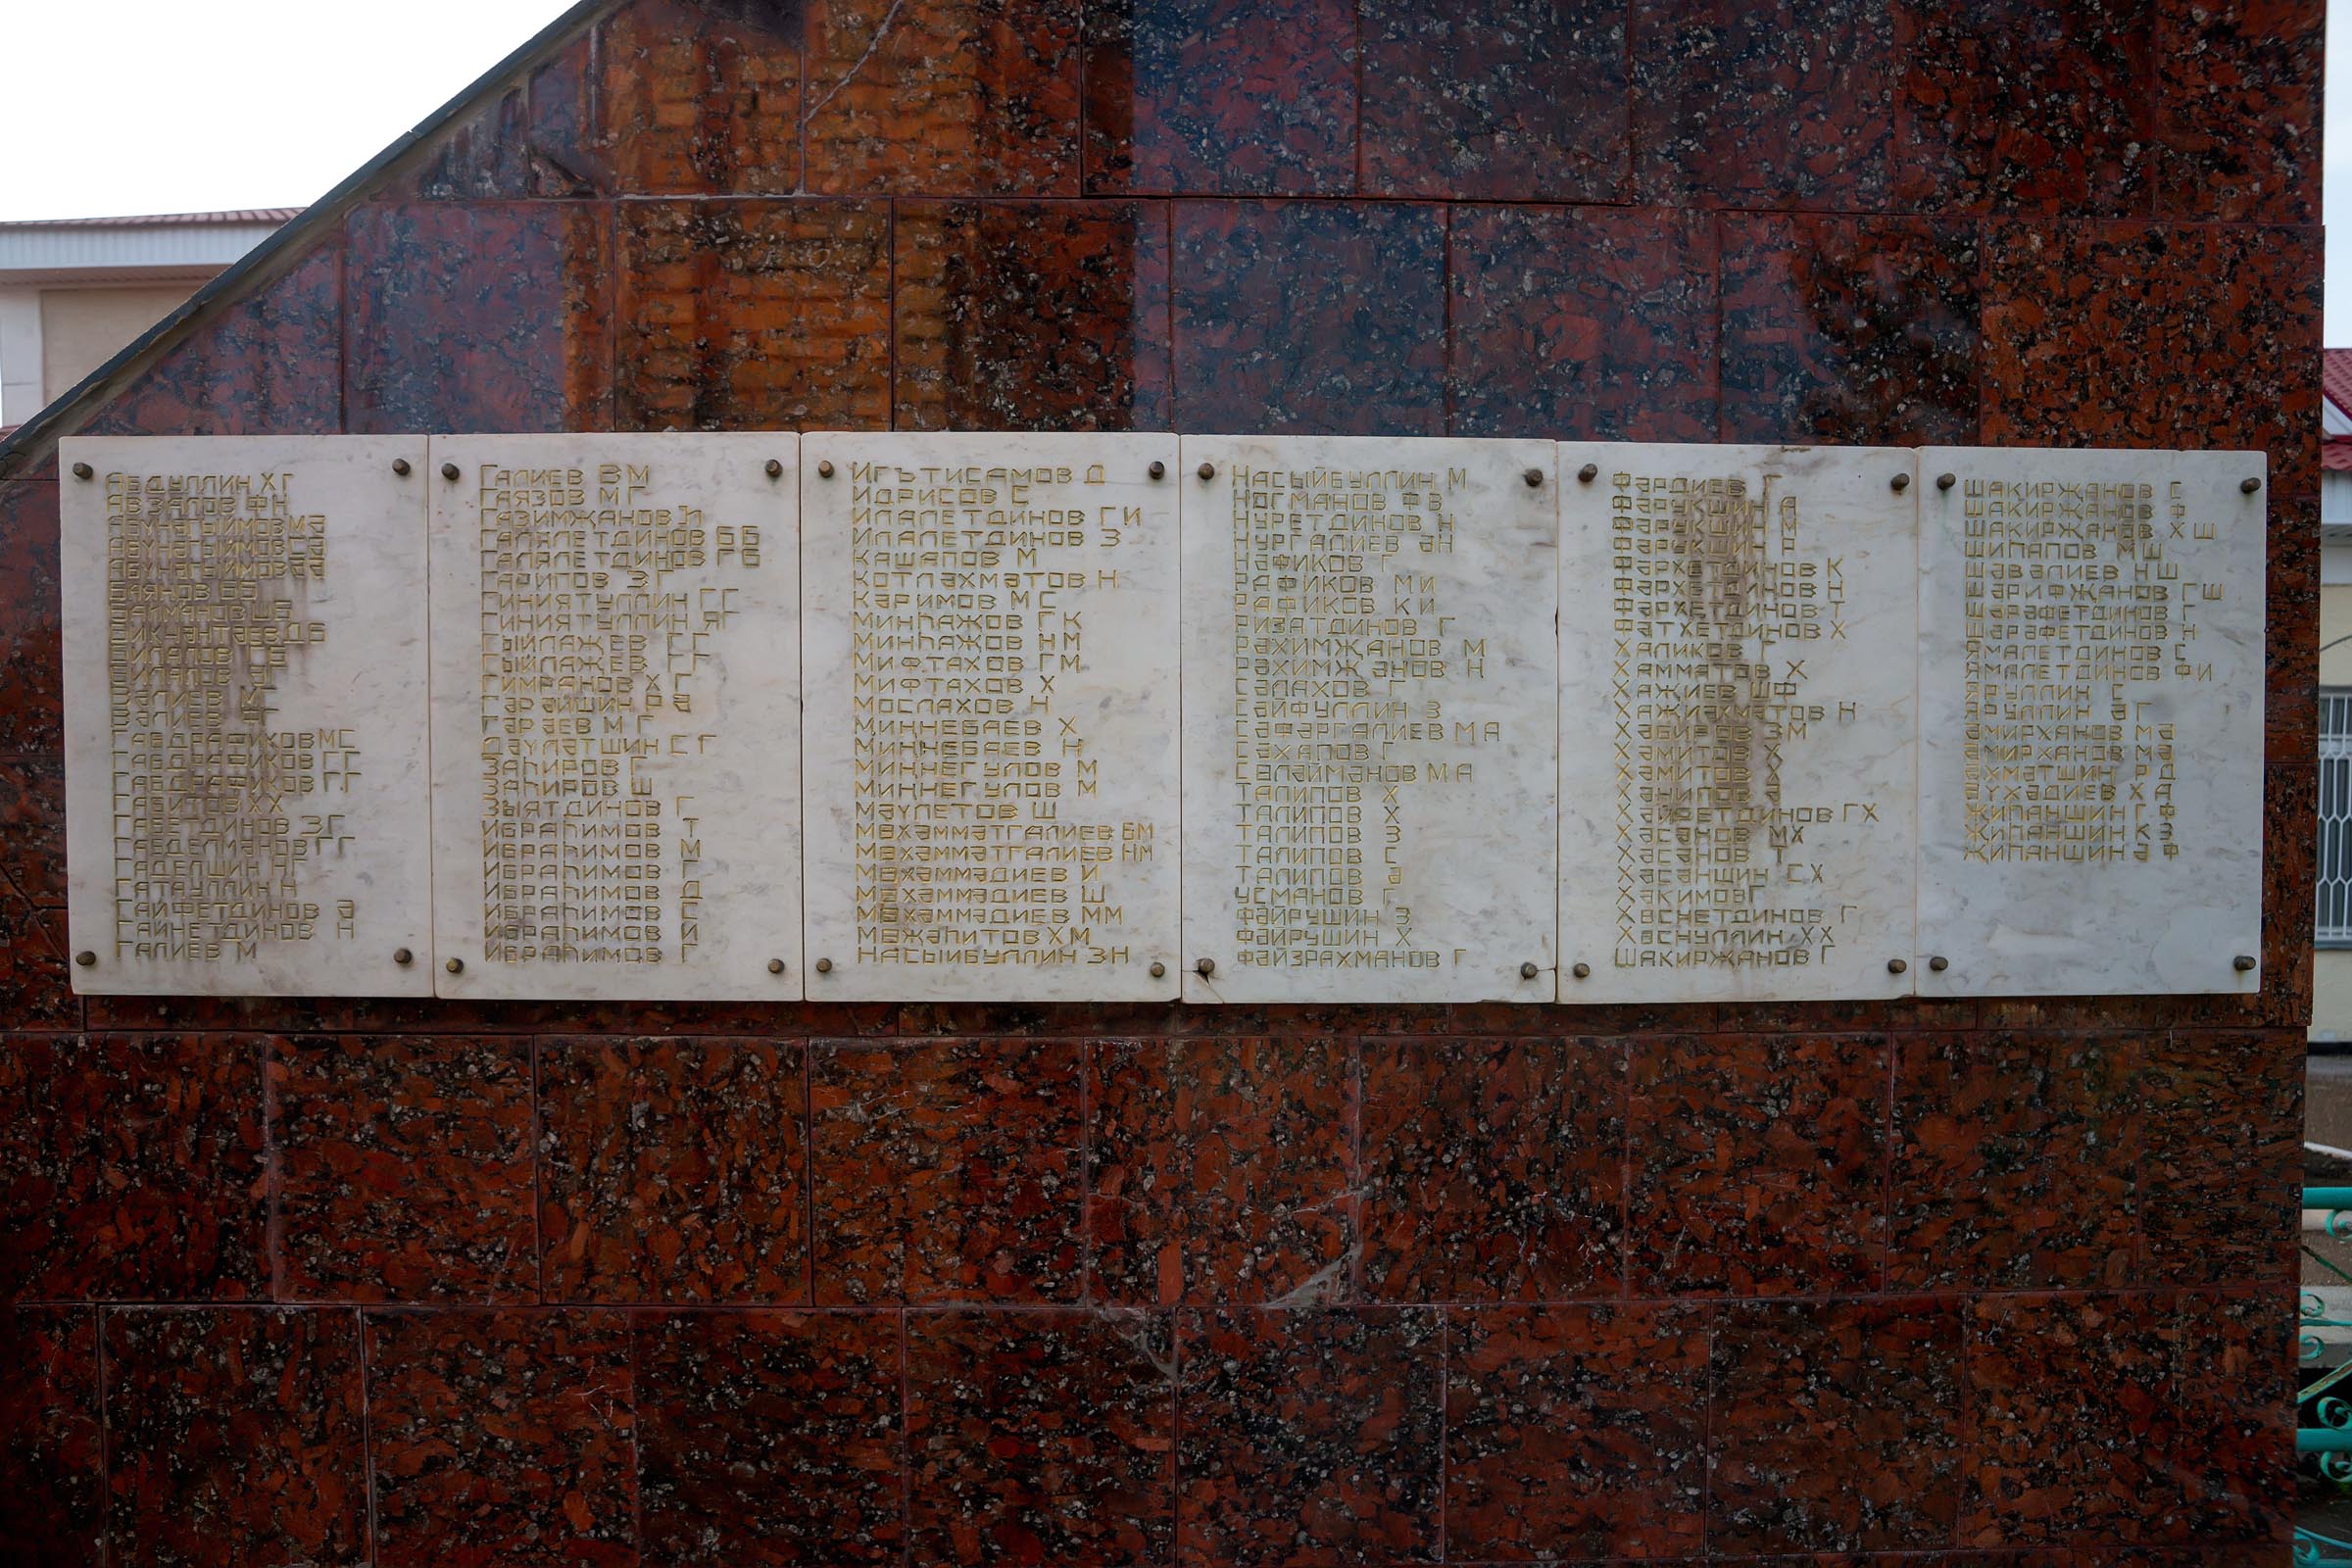 Абдуллин Х Г
Авзалов Ф Н
Баянов Б Б
Байманов Ш Б
Билалов
Билалов
Вәлиев
Вәлиев
Габдрафиков М С
Габдрафиков Г Г
Габдрафиков Г Г
Габитов Х Х
Гаделшин Н Г
Гатауллин Н
Гайфетдинов Ә
Гайнетдинов Н
Галиев М
Галиев В М
Гаязов М Г
Газимҗанов И
Галялетдинов Б Б
Галялетдинов Г Б
Гарипов З Г
Гиниятуллин Г Г
Гиниятуллин Я Г
Гыйлаҗев Г Г
Гыйлаҗев Г Г
Гимранов Х Г
Гарайшин Р Ә
Гәрәев М Г
Дәүләтшин С Г
Заһиров Г
Заһиров Ш
Зыятдинов Г
Ибраһимов Т
Ибраһимов М
Ибраһимов Г
Ибраһимов Д
Ибраһимов С
Ибраһимов И
Ибраһимов Г
Игътисамов Д
Идрисов С
Илалетдинов Г И
Илалетдинов З
Кашапов М
Котләхмәтов Н
Кәримов М С
Минһаҗов Г К
Минһаҗов Н М
Мифтахов Г М
Мифтахов Х
Мослахов Н
Миңнебаев Х
Миңнебаев Н
Миңнегулов М
Миңнегулов М
Мәүлетов Ш
Мөхәммәтгалиев Б М
Мөхәммәтгалиев Н М
Мөхәммәдиев И
Мөхәммәдиев Ш
Мөхәммәдиев М М
Мөҗәһитов Х М
Насыйбуллин З Н
Насыйбуллин М
Ногманов Ф В
Нуретдинов Н
Нургалиев Ә Н
Нафиков Г
Рафиков М И
Рафиков К И
Ризатдинов Г
Рәхимҗанов М
Рәхимҗанов Н
Сәлахов Г
Сәйфуллин З
Сәфәргалиев М А
Сәхапов Г
Сөләйманов М А
Талипов Х
Талипов Х
Талипов З
Талипов С
Талипов Ә
Усманов Г
Фәйрушин З
Фәйрушин Х
Фәйзрахманов Г
Фәрдиев Г
Фәрукшин Д
Фәрукшин М
Фәрукшин Р
Фәрхетдинов К
Фәрхетдинов Н
Фәрхетдинов Т
Фәтхетдинов Х
Хәликов Г
Хамматов Х
Хаҗиев Ш Ф
Хаҗиәхмәтов Н
Хәбиров З М
Хәмитов Х
Хәмитов Х
Хәнипов Ә
Хәйретдинов Г Х
Хәсәнов М Х
Хәсәнов Т
Хәсәншин С Х
Хәкимов Г
Хөснетдинов Г
Хөснуллин Х Х
Шакирҗанов Г
Шакирҗанов С
Шакирҗанов Ф
Шакирҗанов Х Ш
Шиһапов М Ш
Шәвәлиев Н Ш
Шәрифҗанов Г Ш
Шәрәфетдинов Г
Шәрәфетдинов Н
Ямалетдинов С
Ямалетдинов Ф И
Яруллин С
Яруллин Ә Г
Әмирханов М Ә
Әмирханов М Ә
Әхмәтшин Р Д
Әүхәдиев Х А
Җиһаншин Г Ф
Җиһаншин К З
Җиһаншин Ә Ф